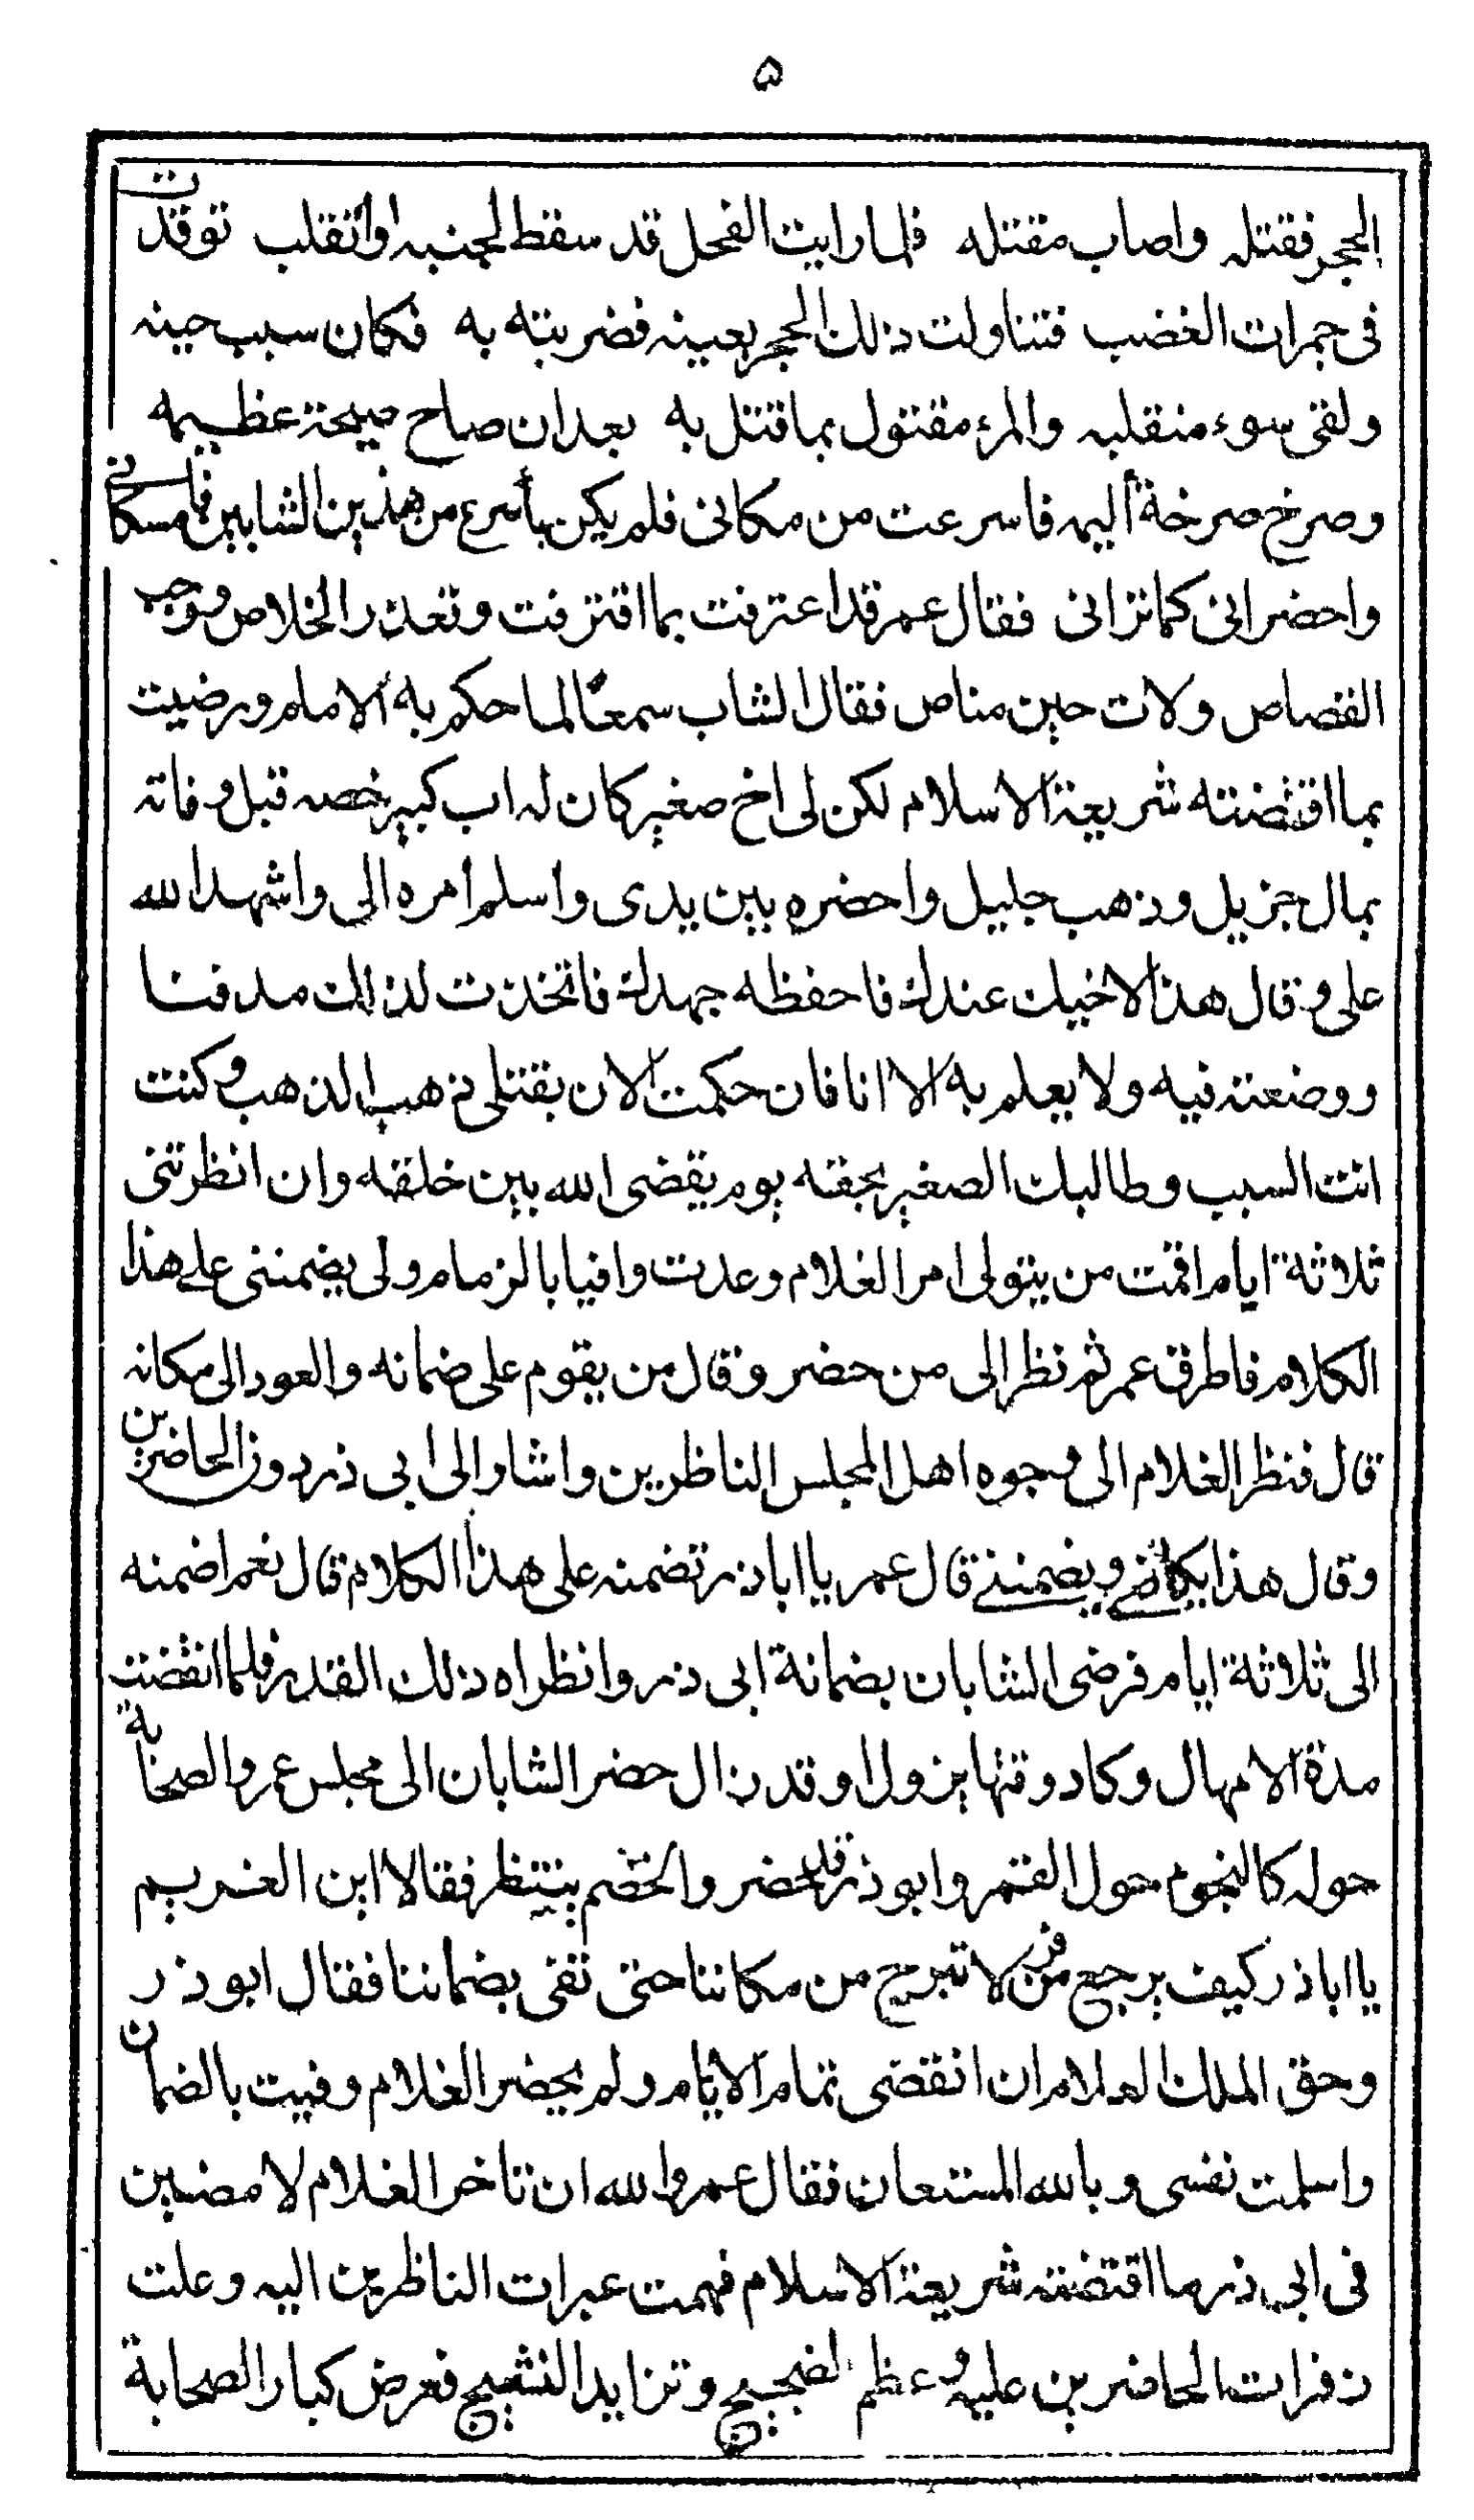 ۵
الحجر فقتله واصاب مقتله فلما رايت الفحل قد سقط لجنبه وانقلب توقدت
فى جمرات الغضب فتناولت ذلك الحجر بعينه فضربته به فكان سبب حينه
ولقى سوء منقلبه والمرء مقتول بما قتل به بعد ان صاح صيحة عظيمه
وصرخ صرخة أليمه فاسرعت من مكانى فلم يكن بأسرع من هذين الشابين فامسكانى
واحضرانى كما ترانى فقال عمر قد اعترفت بما اقترفت وتعذر الخلاص ووجب
القصاص ولات حين مناص فقال الشاب سمعًا لما حكم به الامام ورضيت
بما اقتضته شريعة الاسلام لكن لى اخ صغير كان له اب كبير خصه قبل وفاته
بمال جزيل وذهب جليل واحضره بين يدى واسلم امره الى واشهد الله
على وقال هذا لاخيك عندك فاحفظه جهدك فاتخذت لذلك مدفنا
ووضعته فيه ولا يعلم به الا انا فان حكمت الان بقتلى ذهب الذهب وكنت
انت السبب وطالبك الصغير بحقه يوم يقضى الله بين خلقه وان انظرتنى
ثلاثة ايام اقمت من يتولى امر الغلام وعدت وافيا بالزمام ولى يضمننى على هذا
الكلام فاطرق عمر ثم نظر الى من حضر وقال من يقوم على ضمانه والعود الى مكانه
قال فنظر الغلام الى وجوه اهل المجلس الناظرين واشار الى ابى ذر دون الحاضرين
وقال هذا يكافنى ويضمننى قال عمر يا ابا ذر تضمنه على هذا الكلام قال نعم اضمنه
الى ثلاثة ايام فرضى الشابان بضمانة ابى ذر وانظراه ذلك القدر فلما انقضت
مدة الامهال وكاد وقتها يزول او قد زال حضر الشابان الى مجلس عمر والصحابة
حوله كالنجوم حول القمر وابو ذر قد حضر والخصم ينتظر فقالا اين الغريم
يا ابا ذر كيف يرجع من فر لا تبرح من مكاننا حتى تفى بضماننا فقال ابو ذر
وحق الملك العلام ان انقضى تمام الايام ولم يحضر الغلام وفيت بالضمان
واسلمت نفسى وبالله المستعان فقال عمر والله ان تاخر الغلام لامضين
فى ابى ذر ما اقتضته شريعة الاسلام فهمت عبرات الناظرين اليه وعلت
زفرات الحاضرين عليه وعظم الضجيج وتزايد النشيج فعرض كبار الصحابة